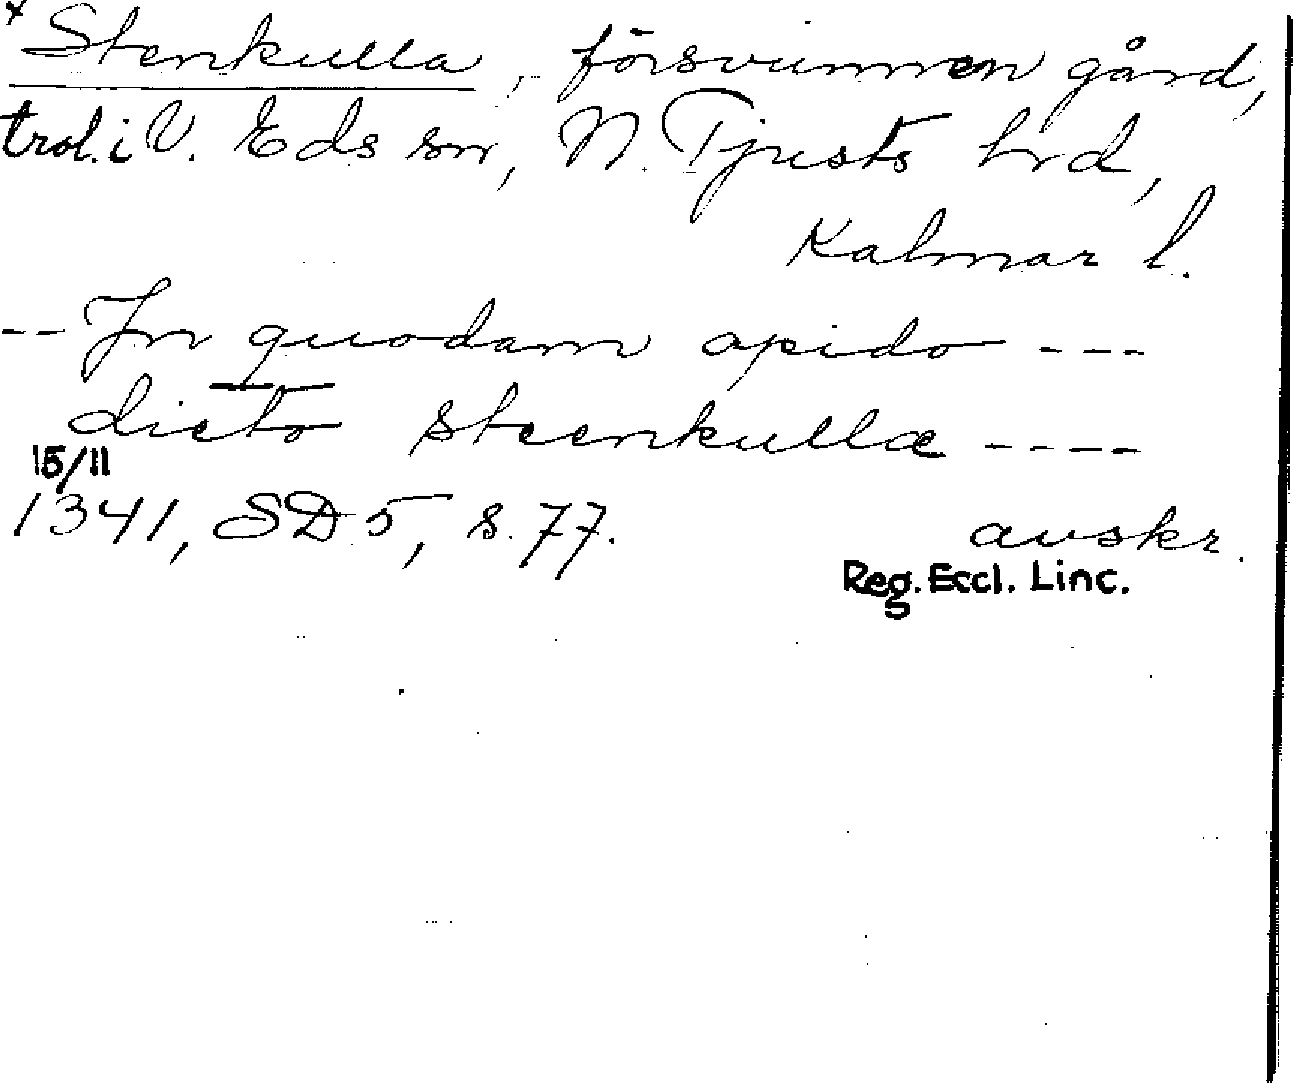 * Stenkulla, försvunnen gård,
trol. i V. Eds sn, N. Tjusts hrd,
Kalmar l.
-- Jn quodam opido ---
dicto steenkullæ ----
15/11
1341, SD 5, s. 77. avskr.
Reg. Eccl. Linc.